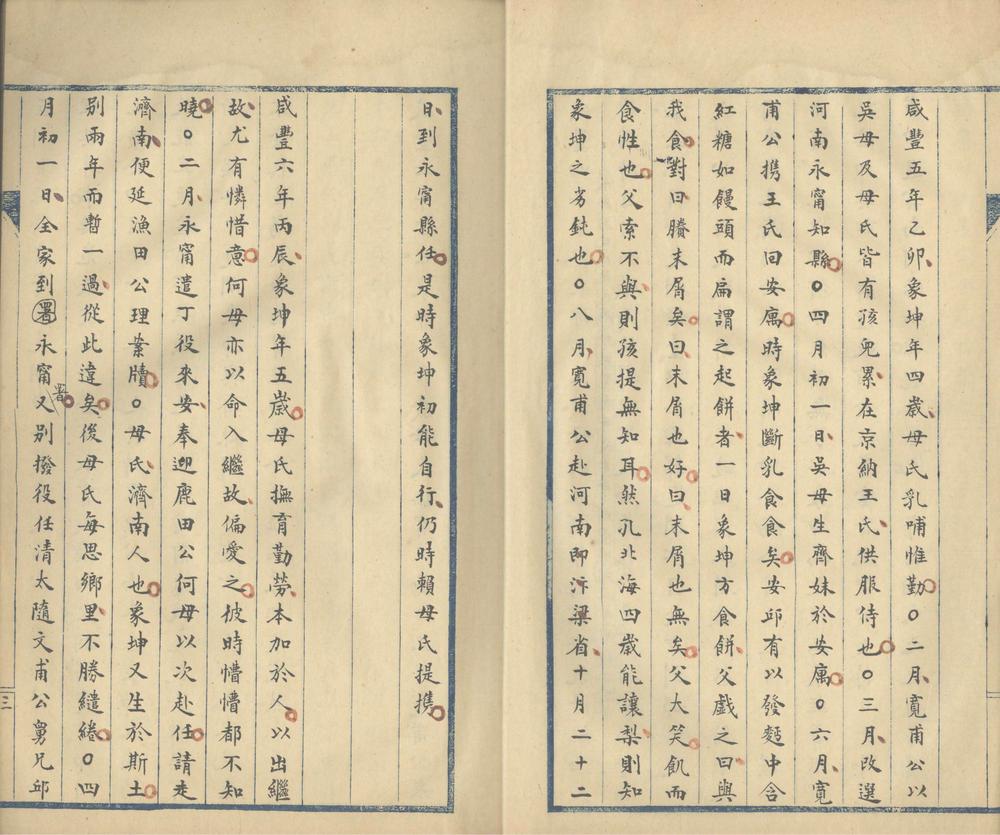 咸豐五年乙卯象坤年四歲母氏乳哺惟勤〇二月寬甫公以
吳母及母氏皆有孩兒累在京納王氏供服侍也〇三月改選
河南永甯知縣〇四月初一日吳母生齊妹於安寓〇六月寬
甫公携王氏回安寓時象坤斷乳食食矣安邱有以發麪中含
紅糖如饅頭而扁謂之起餅者一日象坤方食餅父戲之曰與
我食對曰賸末屑矣曰末屑也好曰末屑也無矣父大笑飢而
食性也父索不與則孩提無知耳然孔北海四歲能讓梨則知
象坤之劣鈍也〇八月寬甫公赴河南即汴梁省十月二十二
日到永甯縣任是時象坤初能自行仍時賴母氏提携
咸豐六年丙辰象坤年五歲母氏撫育勤勞本加於人以出繼
故尤有憐惜意何母亦以命入繼故偏愛之彼時懵懵都不知
曉〇二月永甯遣丁役來安奉迎鹿田公何母以次赴任請走
濟南便延漁田公理案牘〇母氏濟南人也象坤又生於斯土
别兩年而暫一過從此違矣後母氏每思鄉里不勝繾綣〇四
月初一日全家到署永甯又别撥役任清太隨文甫公舅兄邱
署
三